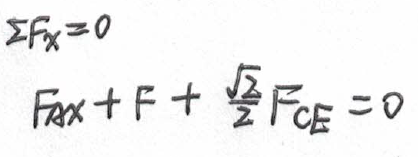 ΣFx=0
FAx + F + √2/2 FCE = 0